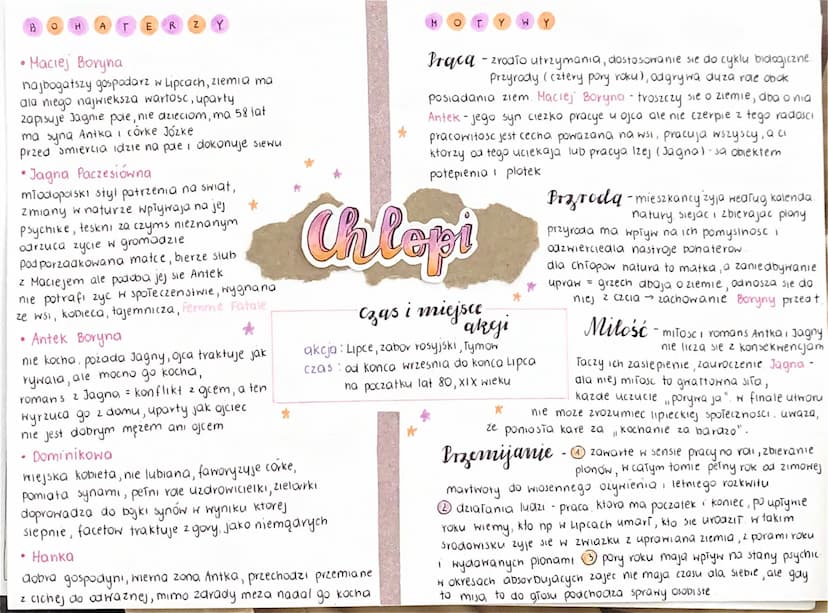 BOHATERZY
• Maciej Boryna
najbogatszy gospodarz w Lipcach, ziemia ma
dla niego największa wartość, uparty
zapisuje Jagnie pole, nie dzieciom, ma 58 lat
ma syna Antka i córke Józkę
przed śmiercia idzie na pole i dokonuje siewu
• Jagna Paczesiówna
młodopolski styl patrzenia na świat,
zmiany w naturze wpływają na jej
psychike, teskni za czyms nieznanym
odrzuca życie w gromadzie
podporzadkowana matce, bierze ślub
z Maciejem ale podoba jej sie Antek
nie potrafi żyć w społeczeństwie, wygnana
ze wsi, kobieca, tajemnicza, Femme Fatale
• Antek Boryna
nie kocha, pożada Jagny, ojca traktuje jak
rywala, ale mocno go kocha,
romans z Jagna = konflikt z ojcem, a ten
wyrzuca go z domu, uparty jak ojciec
nie jest dobrym mężem ani ojcem
• Dominikowa
wiejska kobieta, nie lubiana, faworyzuje córke,
pomiata synami, pełni role uzdrowicielki, zielarki
doprowadza do bójki synów w wyniku której
ślepnie, facetów traktuje z góry, jako niemądrych
• Hanka
dobra gospodyni, wierna żona Antka, przechodzi przemiane
z cichej do odważnej, mimo zdrady meża nadal go kocha
Chłopi
Czas i miejsce
akcji
akcja: Lipce, zabór rosyjski, Tymów
czas: od końca września do końca Lipca
na początku lat 80, XIX wieku
MOTYWY
Praca - źródło utrzymania, dostosowanie się do cyklu biologiczne
przyrody (cztery pory roku), odgrywa duża role obok
posiadania ziem. Maciej Boryna - troszczy się o ziemie, dba o nia
Antek - jego syn ciezko pracuje u ojca ale nie czerpie z tego radości
pracowitość jest cecha poważana na wsi, pracują wszyscy, a ci
którzy od tego uciekaja lub pracyja lżej (Jagna) - są obiektem
potepienia i plotek
Przyroda - mieszkancy żyja według kalenda
natury, siejac i zbierając plony
przyroda ma wpływ na ich pomyślność i
odzwierciedla nastroje bohaterów
dla chłopów natura to matka, a zaniedbywanie
upraw = grzech dbaja o ziemie, odnosza sie do
niej z czcia → zachowanie Boryny przed ś
Miłość - miłość i romans Antka i Jagny
nie licza się z konsekwencjam
łaczy ich zaślepienie, zauroczenie Jagna -
dla niej miłość to gwałtowna siła,
każde uczucie „porywa ja". w finale utworu
nie może zrozumieć lipieckiej społeczności. uważa,
że poniosła kare za „kochanie za bardzo".
Przemijanie - 1 zawarte w sensie pracy na roli, zbieranie
plonów, w całym tomie pełny rok od zimowej
martwoty do wiosennego ożywienia i letniego rozkwitu
2 działania ludzi - praca, która ma początek i koniec, po upływie
roku wiemy, kto np w Lipcach umarł, kto sie urodził w takim
środowisku żyje się w zwiazku z uprawiana ziemia, z porami roku
i wydawanych plonami 3 pory roku maja wpływ na stany psychic
w okresach absorbujacych zajeć nie maja czasu dla siebie, ale gdy
to mija, to do głosu podchodza sprawy osobiste